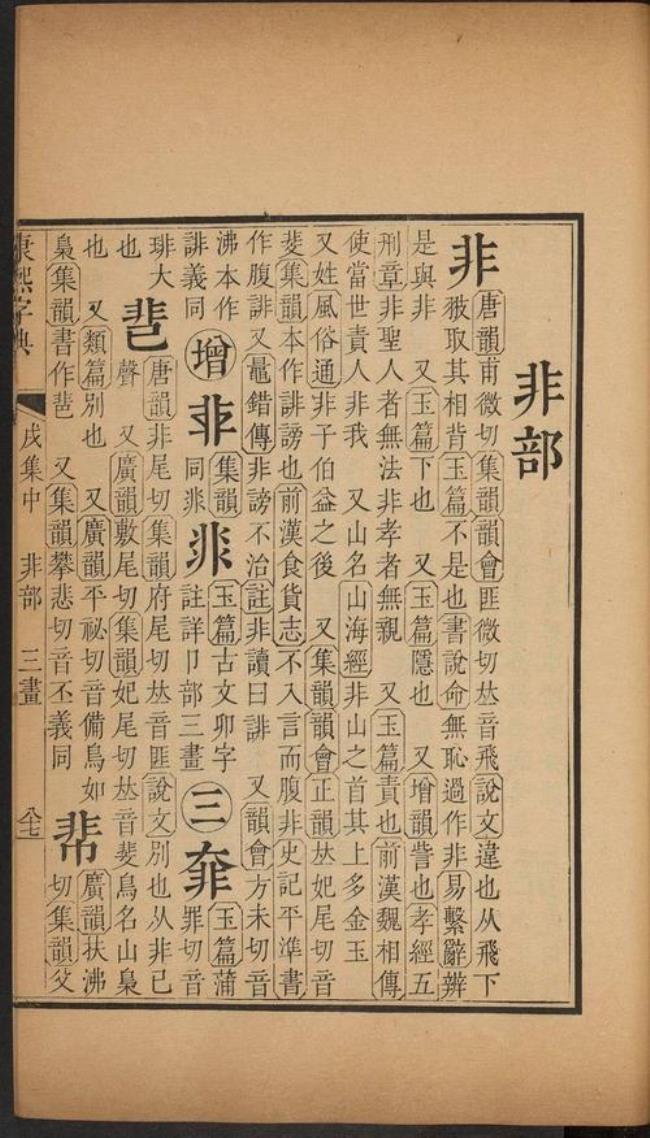 非部
非
唐韻甫微切集韻韻會匪微切𠀤音飛說文違也从飛下
翄取其相背玉篇不是也書說命無恥過作非易繫辭辨
是與非 又玉篇下也 又玉篇隱也 又增韻訾也孝經五
刑章非聖人者無法非孝者無親 又玉篇責也前漢魏相傳
使當世責人非我 又山名山海經非山之首其上多金玉
又姓風俗通非子伯益之後 又集韻韻會正韻𠀤妃尾切音
斐集韻本作誹謗也前漢食貨志不入言而腹非史記平準書
作腹誹又鼂錯傳非謗不治註非讀曰誹 又韻會方未切音
沸本作
誹義同
增
集韻
同
玉篇古文卯字
註詳卩部三畫
三
玉篇蒲
罪切音
琲大
也
唐韻非尾切集韻府尾切𠀤音匪說文別也从非己
聲 又廣韻敷尾切集韻妃尾切𠀤音斐鳥名山梟
也 又類篇別也 又廣韻平祕切音備鳥如
梟集韻書作 又集韻攀悲切音丕義同
廣韻扶沸
切集韻父
康熙字典 戌集中 非部 三畫 八七